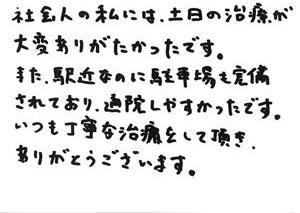 社会人の私には、土日の治療が
大変ありがたかったです。
また、駅近なのに駐車場も完備
されており、通院しやすかったです。
いつも丁寧な治療をして頂き、
ありがとうございます。